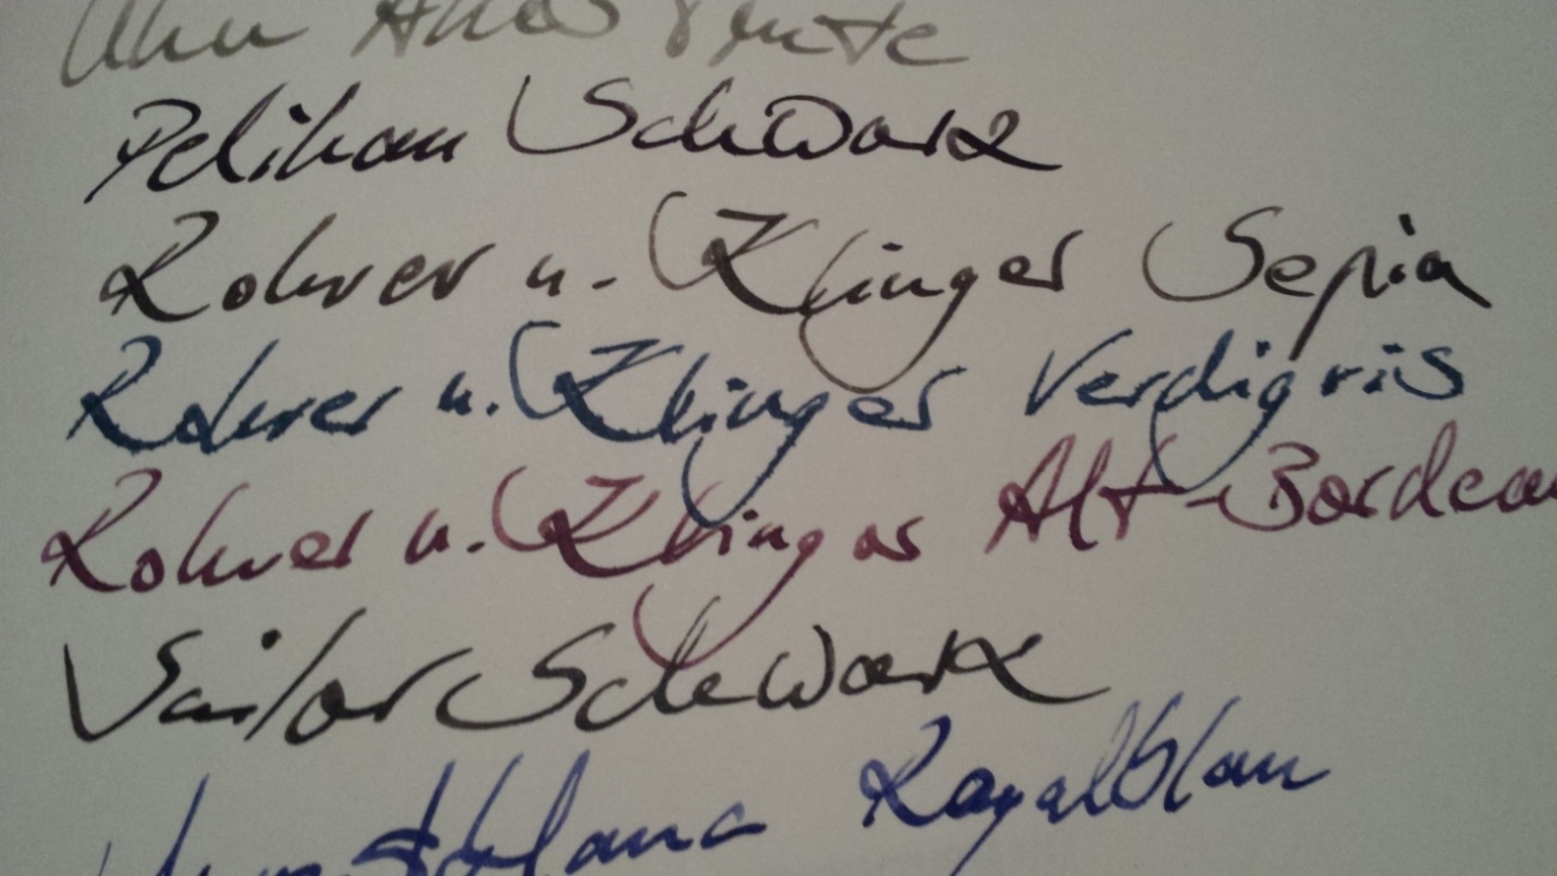 Pelikan Schwarz
Rohrer u. Klinger Sepia
Rohrer u. Klinger Verdigris
Rohrer u. Klinger Alt-Bordeau
Sailor Schwarz
Royalblau